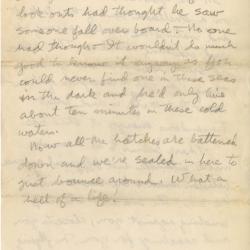 look outs had thought he saw
someone fall over board. No one
had though - It wouldn't do much
good to know it anyway as you
could never find one in these seas
in the dark and he'd only live
about ten minutes in these cold
waters.
Now all the hatches are battened
down and we're sealed in here to
just bounce around. What a
hell of a life!